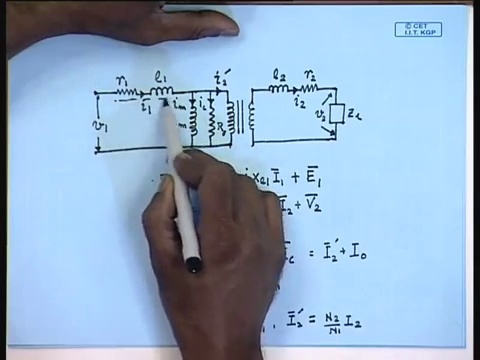 © CET
I.I.T. KGP
r₁ l₁ i₂′ l₂ r₂
i₁ iₘ i_c i₂
v₁ m R v₂ Z_L
j x_{l1} I̅₁ + E̅₁
I̅₂ + V̅₂
I̅_c = I̅₂′ + I₀
, I̅₂′ = N₂/N₁ I₂